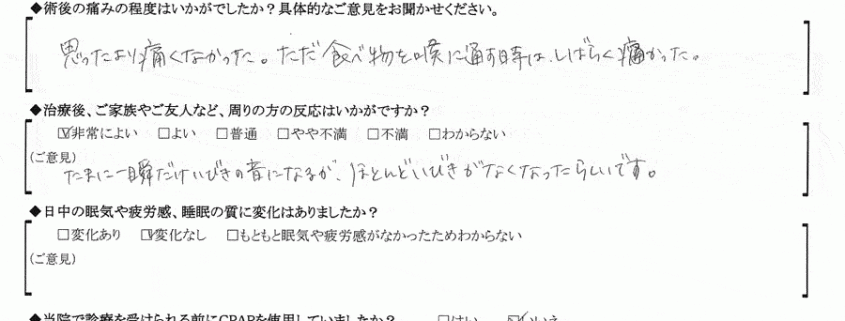 ◆術後の痛みの程度はいかがでしたか？具体的なご意見をお聞かせください。
思ったより痛くなかった。ただ食べ物を喉に通す時は、しばらく痛かった。
◆治療後、ご家族やご友人など、周りの方の反応はいかがですか？
☑非常によい　□よい　□普通　□やや不満　□不満　□わからない
（ご意見）
たまに一瞬だけいびきの音になるが、ほとんどいびきがなくなったらしいです。
◆日中の眠気や疲労感、睡眠の質に変化はありましたか？
□変化あり　☑変化なし　□もともと眠気や疲労感がなかったためわからない
（ご意見）
◆当院で診療を受けられる前にCPAPを使用していましたか？　□はい　☑いいえ